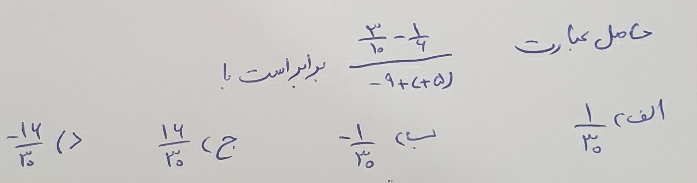 حاصل عبارت (۳/۱۰ - ۱/۶) / (-۹+(+۵)) برابر است با
الف) ۱/۳۰ ب) -۱/۳۰ ج) ۱۶/۳۰ د) -۱۶/۳۰